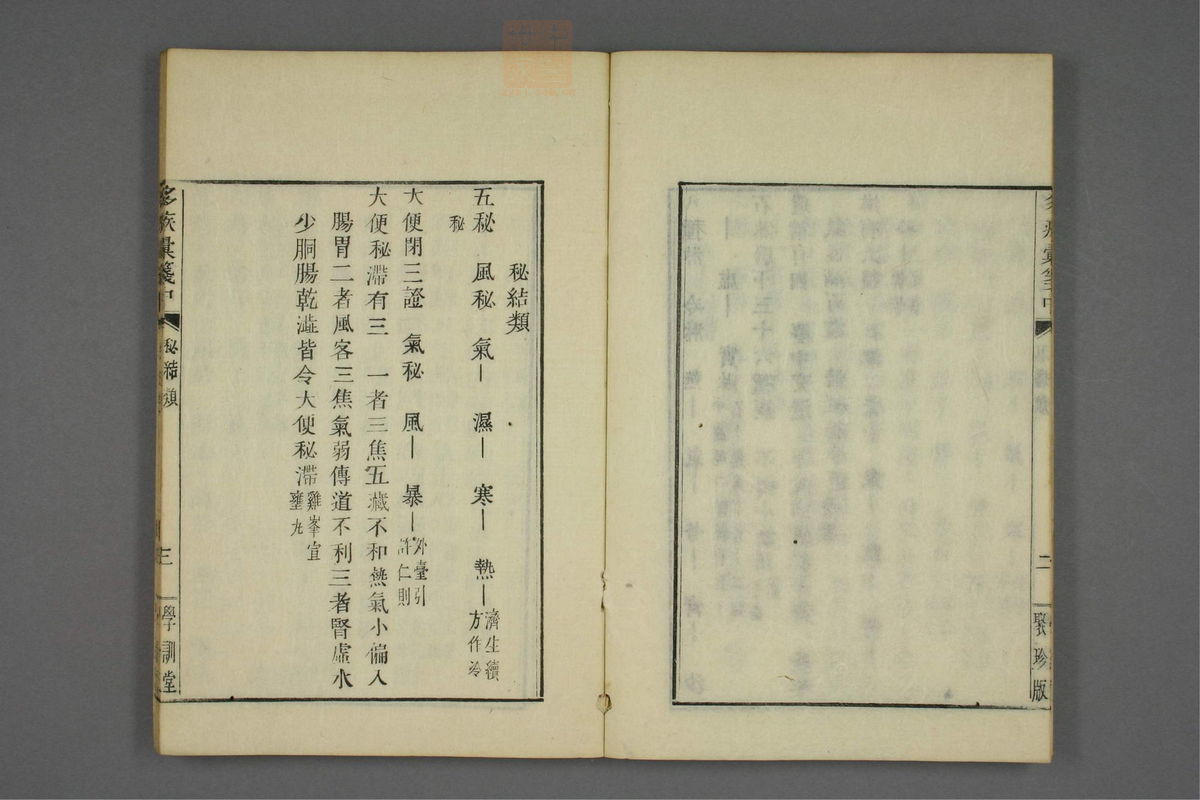 二
聚珍版
秘結類
五秘　風秘　氣｜　濕｜　寒｜　熱｜濟生續方作冷
秘
大便閉三證　氣秘　風｜　暴｜外臺引許仁則
大便秘滯有三　一者三焦五藏不和熱氣小偏入
腸胃二者風客三焦氣弱傳道不利三者腎虛水
少胴腸乾澁皆令大便秘滯雞峯宣壅丸
秘結類
三
學訓堂